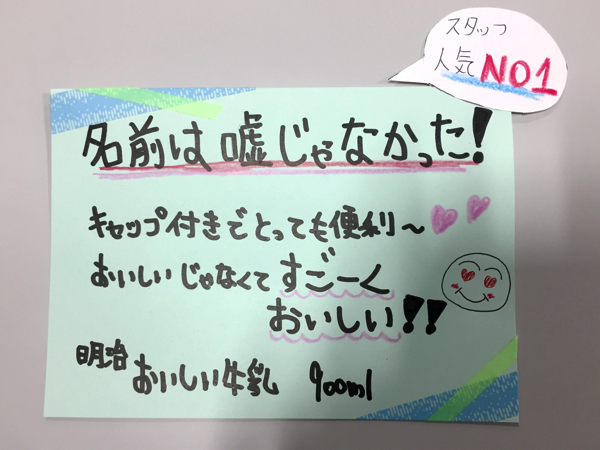 スタッフ
人気NO1
名前は嘘じゃなかった!
キャップ付きでとっても便利～
おいしいじゃなくてすごーく
おいしい!!
明治おいしい牛乳 900ml